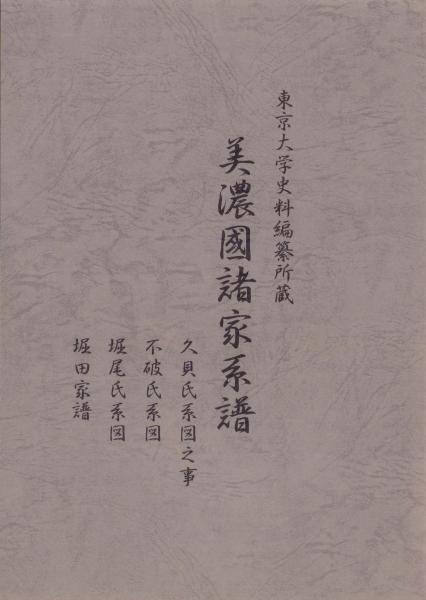 東京大学史料編纂所蔵
美濃國諸家系譜
久貝氏系図之事
不破氏系図
堀尾氏系図
堀田家譜